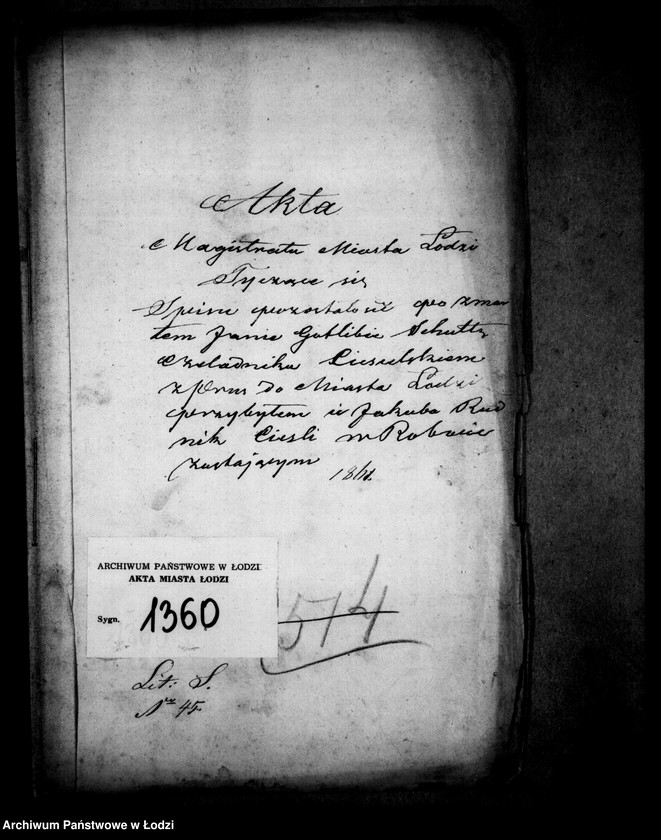 Akta
Magistratu Miasta Łodzi
Tyczące się
Spisu pozostałości po zmar
łem Janie Gotlibie Schultz
Czeladniku Ciesielskiem
z Prus do Miasta Łodzi
przybyłem i u Jakuba Rud
nik Cieśli w Robocie
zostającym
ARCHIWUM PAŃSTWOWE W ŁODZI
AKTA MIASTA ŁODZI
Sygn. 1360
514
Lit: S.
Nr 45.
Archiwum Państwowe w Łodzi